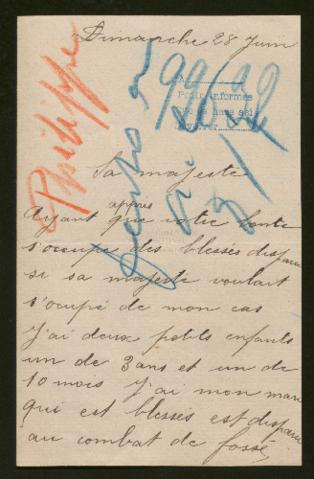 Dimanche 28 Juin
Philippe
Sa majeste
Ayant appres que votre bonte
s'occupe des blessés disparu
si sa majesté voulait
s'occupé de mon cas
j'ai deux petits enfants
un de 3 ans et un de
10 mois j'ai mon mari
qui est blessés est disparu
au combat de fossé,